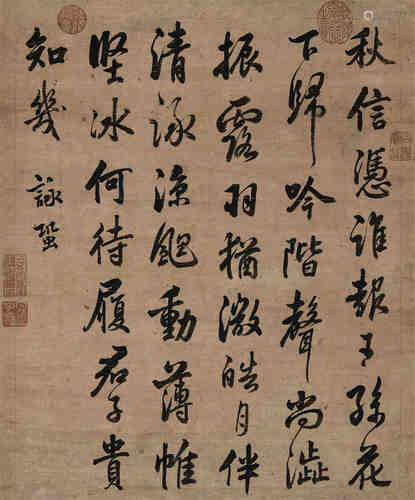 秋信憑誰報王孫花
下歸吟階聲尚澁
振露羽猶微皓月伴
清詠涼颸動薄帷
堅冰何待履君子貴
知幾 詠蛩